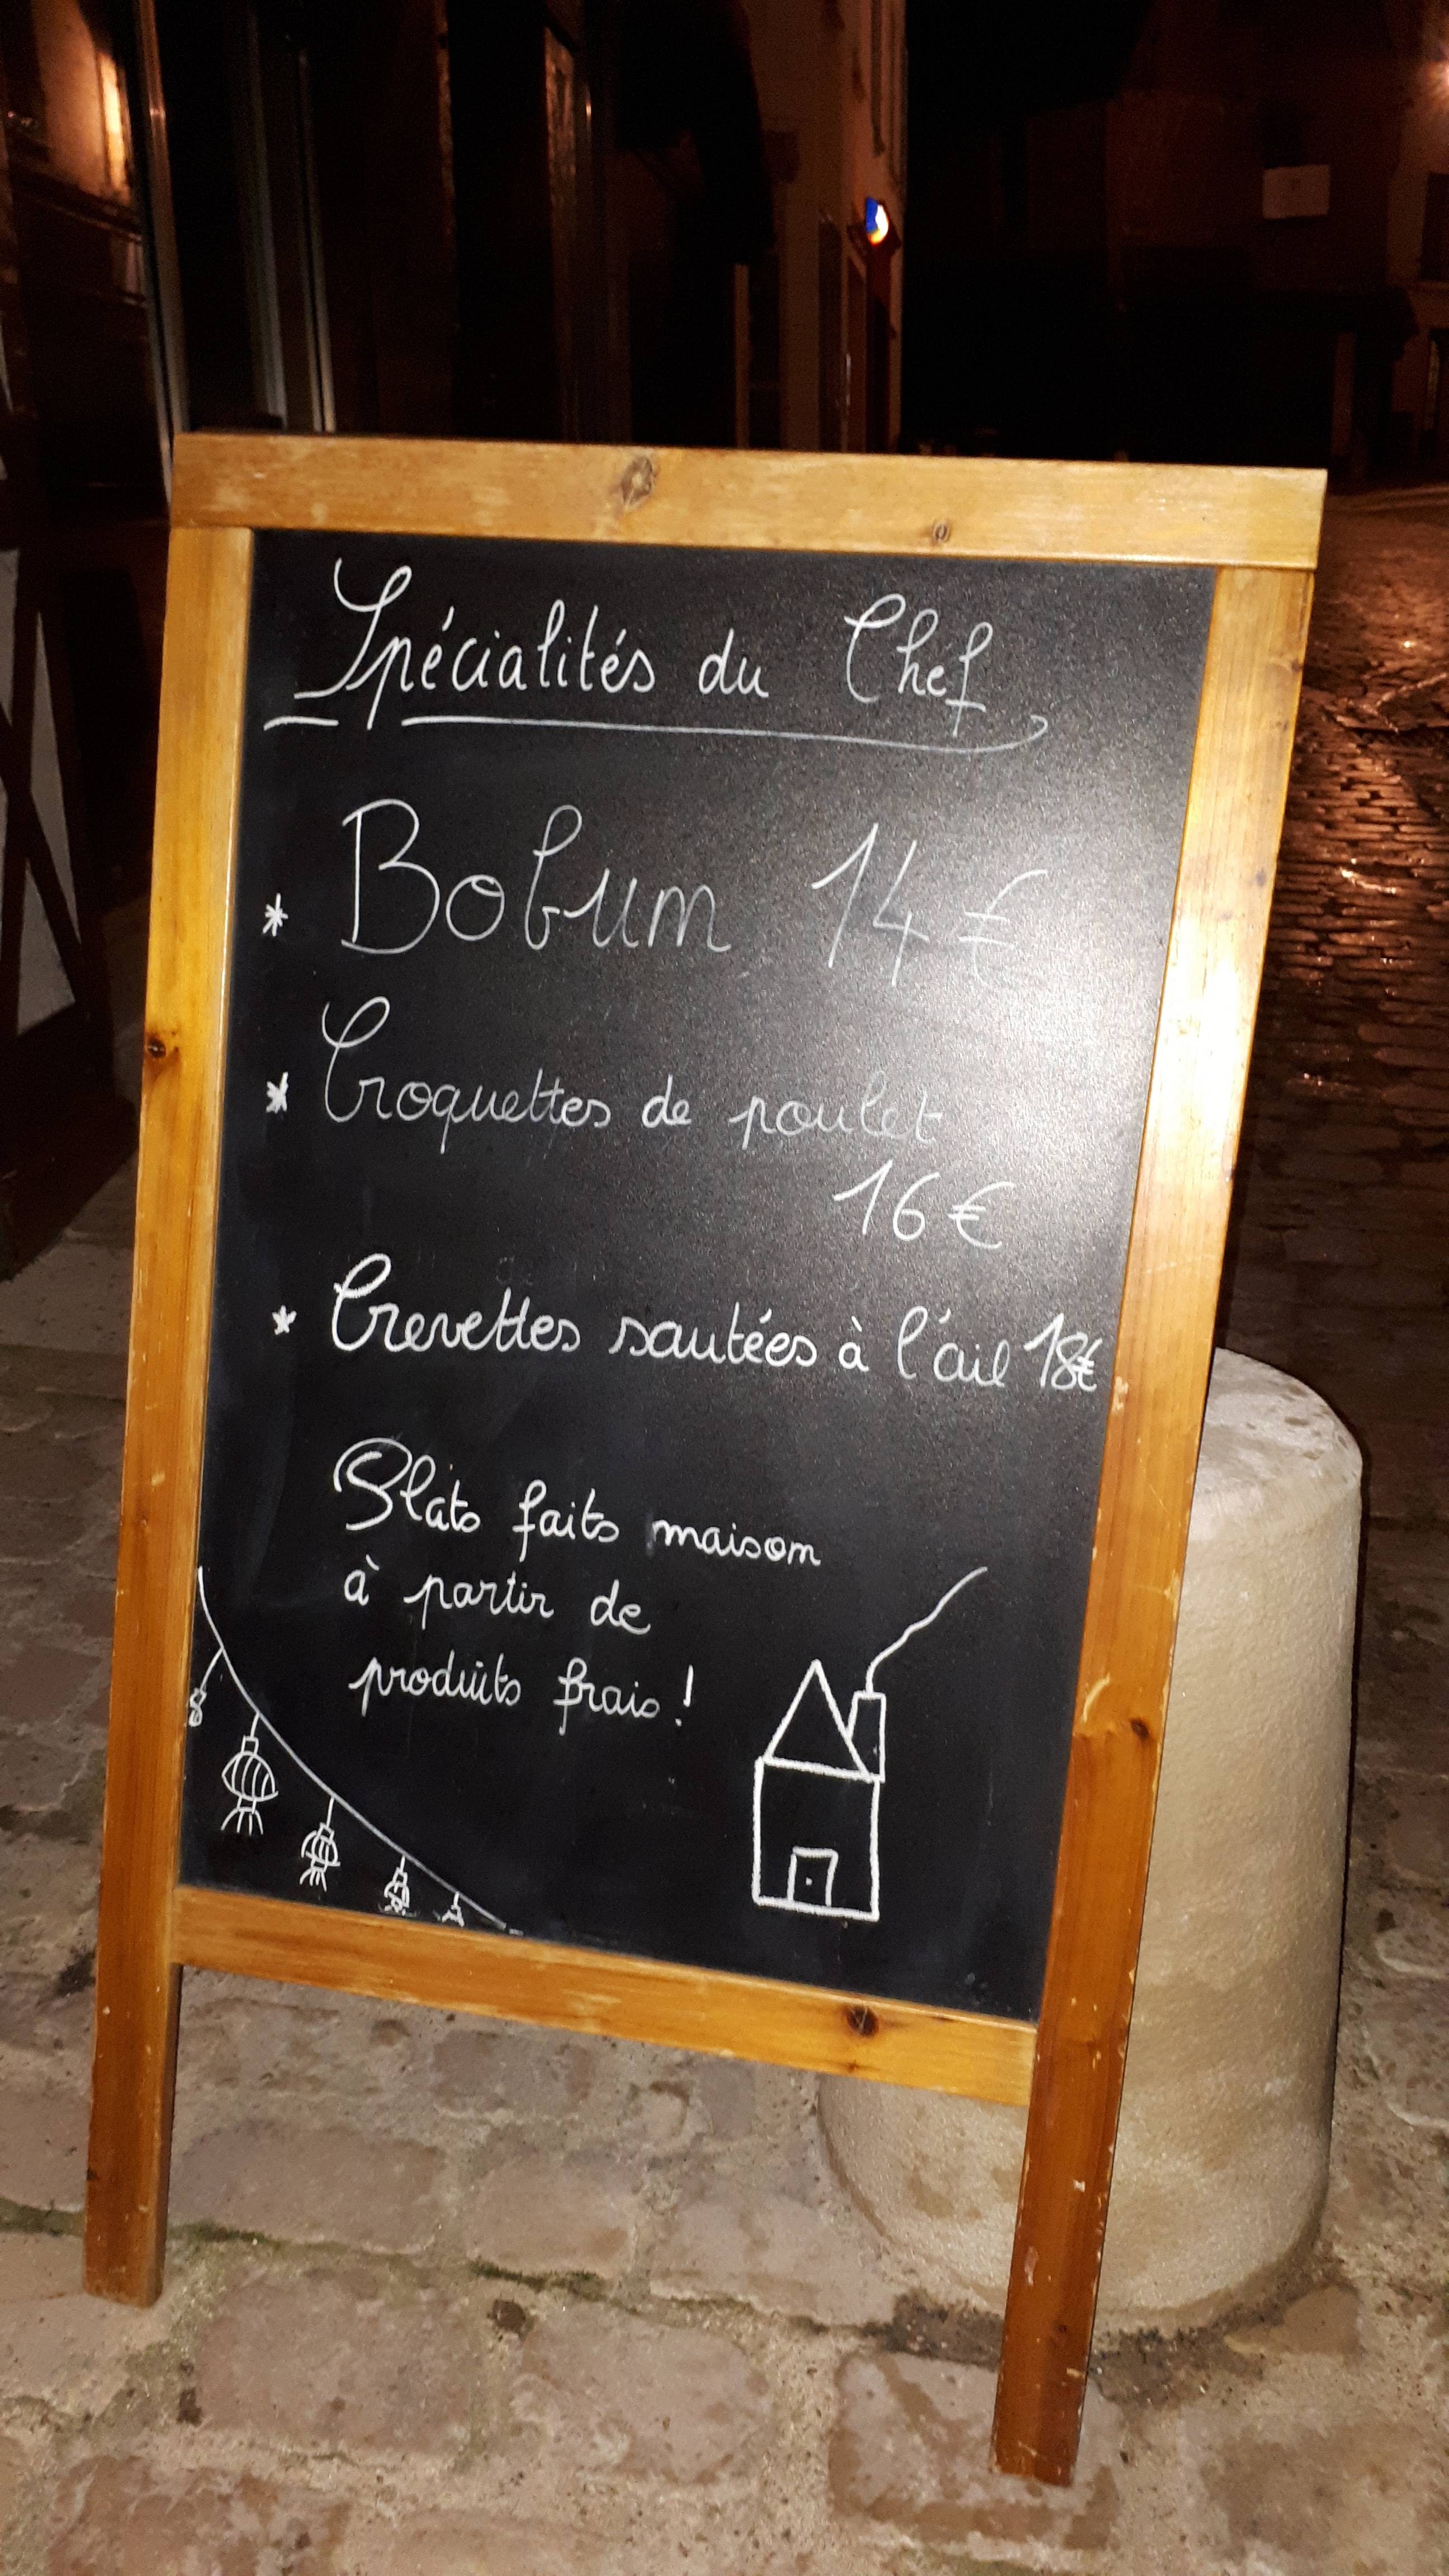 Spécialités du Chef
* Bobum 14 €
* Croquettes de poulet
16 €
* Crevettes sautées à l'ail 18€
Plats faits maison
à partir de
produits frais !